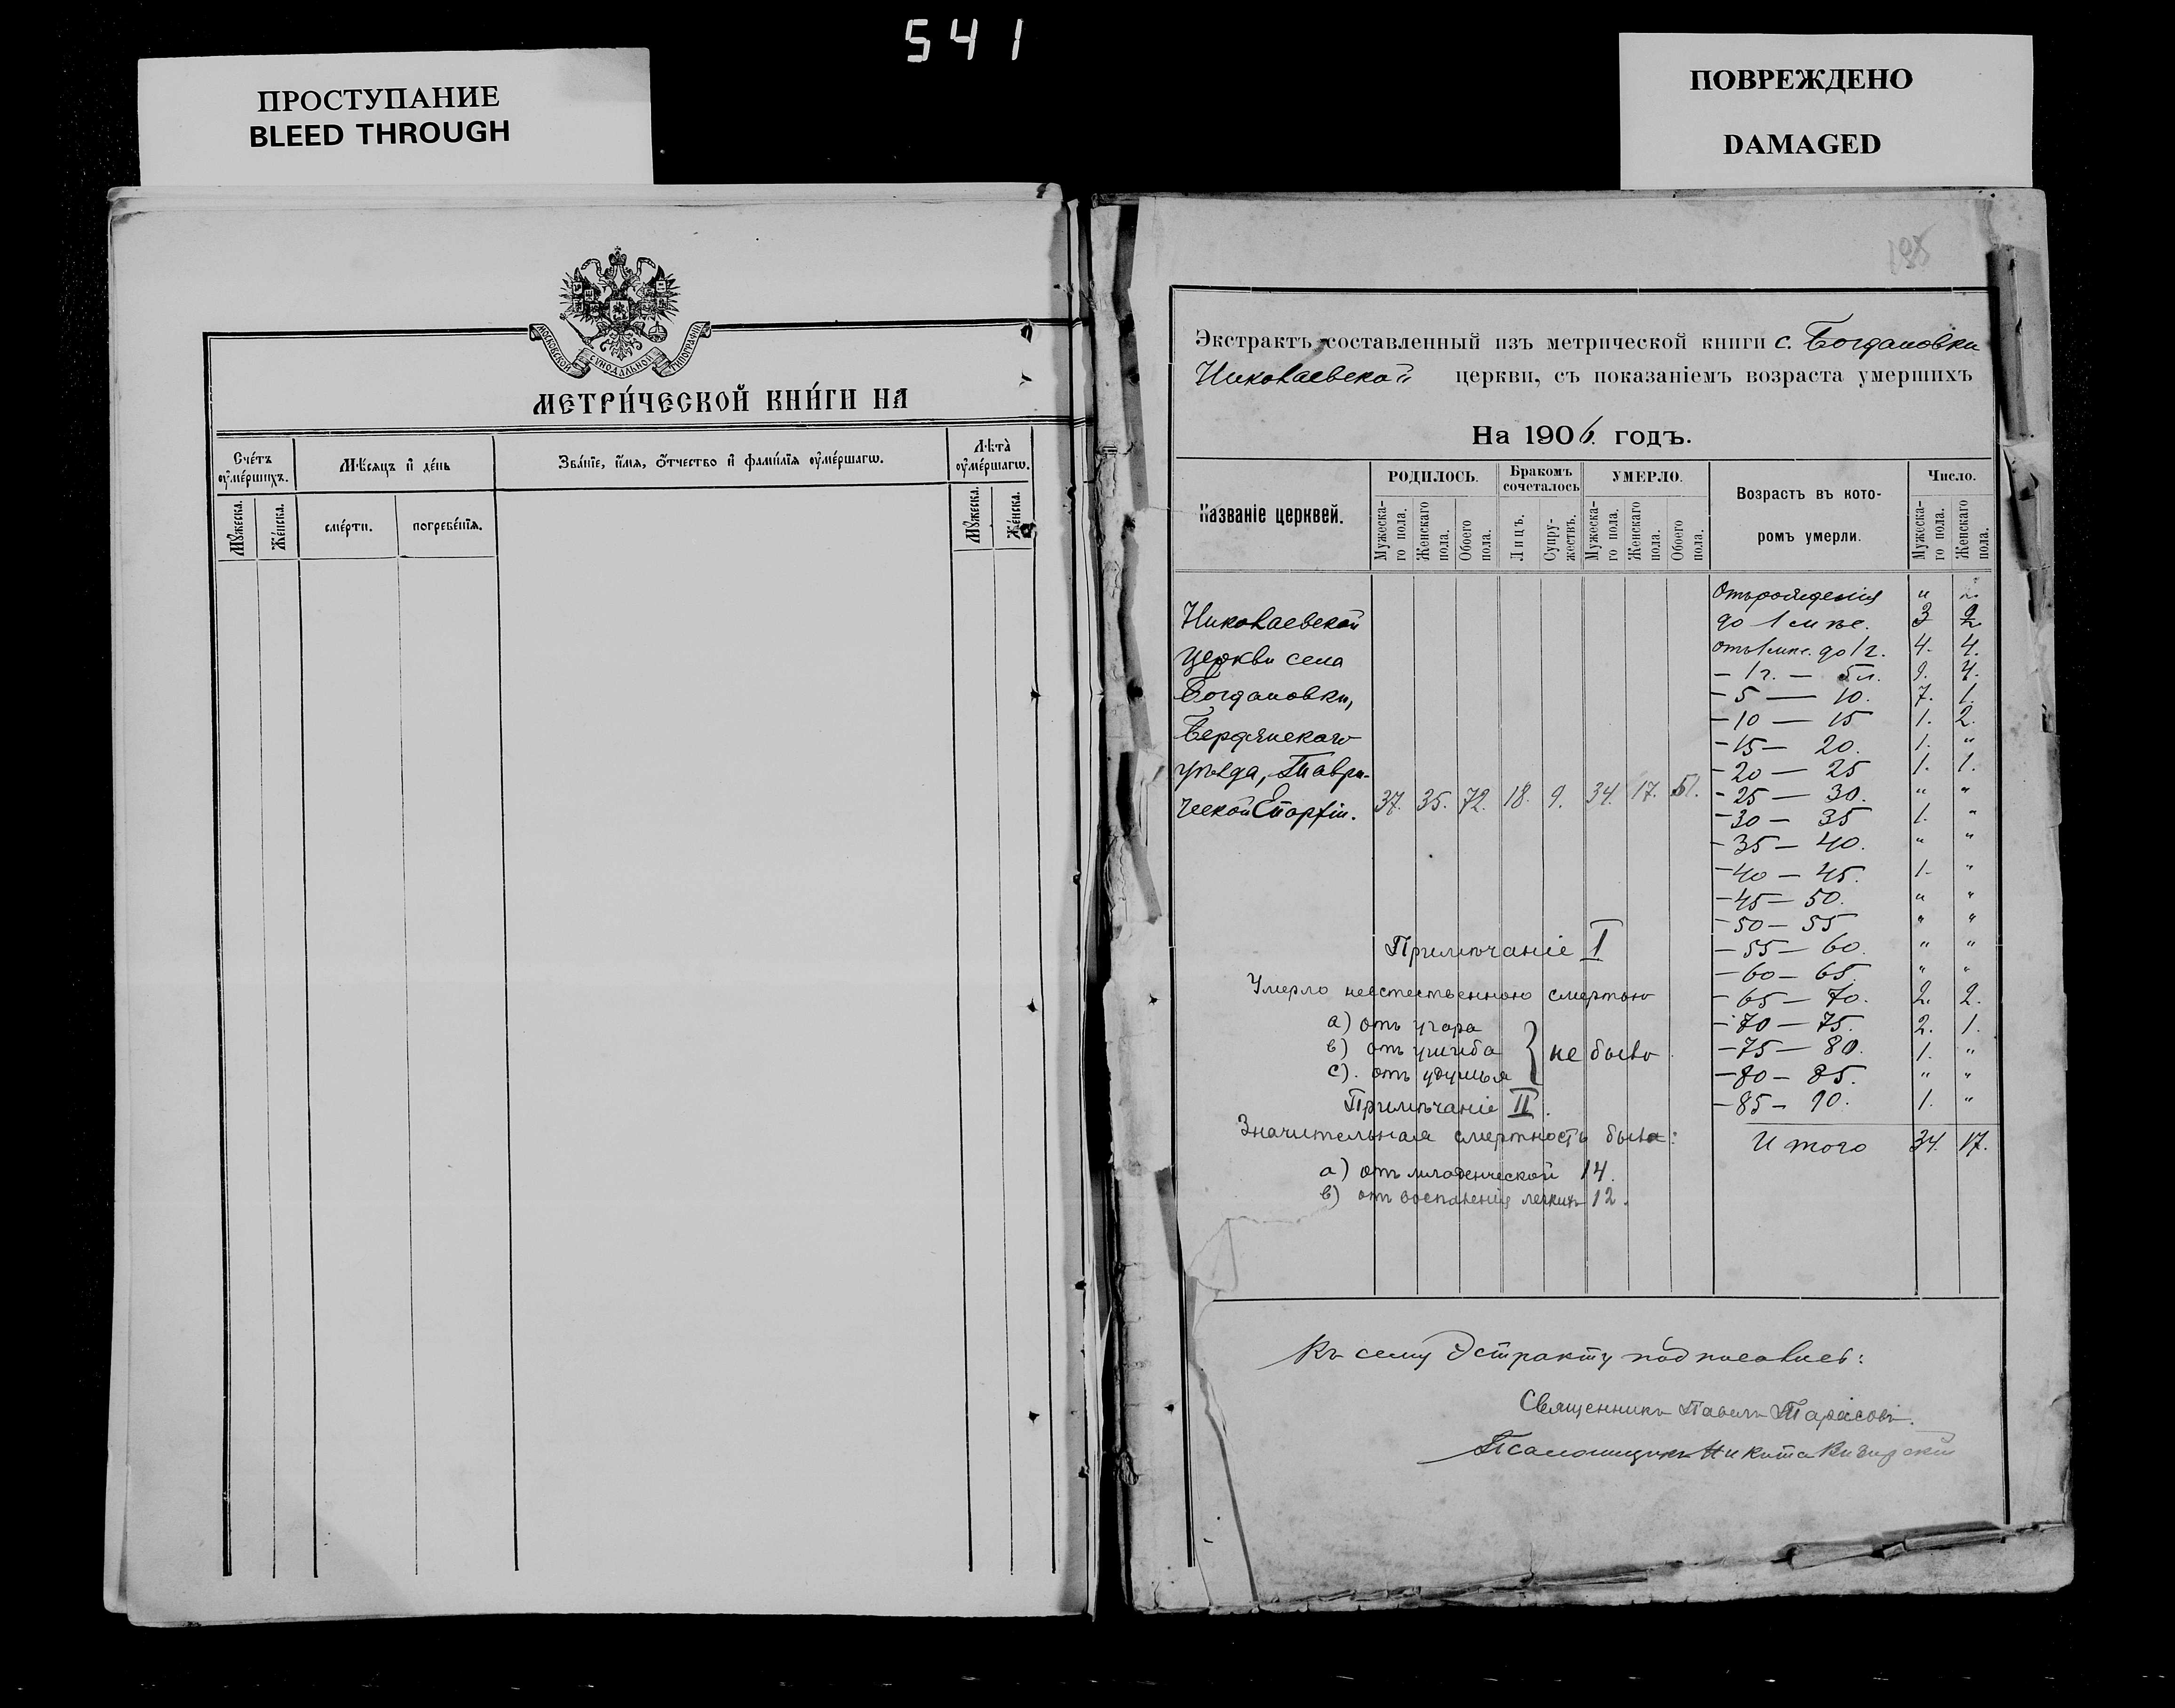 541
ПРОСТУПАНИЕ
BLEED THROUGH
ПОВРЕЖДЕНО
DAMAGED
МОСКОВСКОЙ СѴНОДАЛЬНОЙ ТИПОГРАФІИ
МЕТРИ́ЧЕСКОЙ КНИ́ГИ НА
Сче́тъ ᲂумє́ршихъ.
Мѣ́сяцъ и де́нь
Зва́нїе, и́мя, ѻ́тчество и фами́лїя ᲂуме́ршагѡ.
Лѣта̀ ᲂуме́ршагѡ.
Му́жеска.
Же́нска.
сме́рти.
погребе́нїя.
Му́жеска.
Же́нска.
Экстрактъ составленный изъ метрической книги с. Богдановки
Николаевской церкви, съ показаніемъ возраста умершихъ
На 1906. годъ.
Названіе церквей.
РОДИЛОСЬ.
Бракомъ сочеталось
УМЕРЛО.
Возрастъ въ которомъ умерли.
Число.
Мужескаго пола.
Женскаго пола.
Обоего пола.
Лицъ.
Супружествъ.
Мужескаго пола.
Женскаго пола.
Обоего пола.
Мужескаго пола.
Женскаго пола.
Николаевской
церкви села
Богдановки,
Бердянскаго
уѣзда, Таври-
ческой Епархіи. 37. 35. 72. 18. 9. 34. 17. 51.
Отъ рожденія "
до 1 мѣс. 3 2
отъ 1 мѣс. до 1 г. 4. 4.
— 1 г. — 5 л. 9. 4.
— 5 — 10. 7. 1.
— 10 — 15 1. 2.
— 15 — 20. 1. "
— 20 — 25 1. 1.
— 25 — 30. " "
— 30 — 35 1. "
— 35 — 40. " "
— 40 — 45. 1. "
— 45 — 50. " "
— 50 — 55 " "
— 55 — 60. " "
— 60 — 65. " "
— 65 — 70. 2. 2.
— 70 — 75. 2. 1.
— 75 — 80. 1. "
— 80 — 85. " "
— 85 — 90. 1. "
Итого 34. 17.
Примѣчаніе I
Умерло неестественною смертью
а) отъ угара
в) отъ ушиба } не было
с). отъ удушья
Примѣчаніе II.
Значительная смертность была:
а) отъ младенческой 14.
в) отъ воспаленія легкихъ 12.
Къ сему Эстракту подписались:
Священникъ Павелъ Тарасовъ.
Псаломщикъ Никита